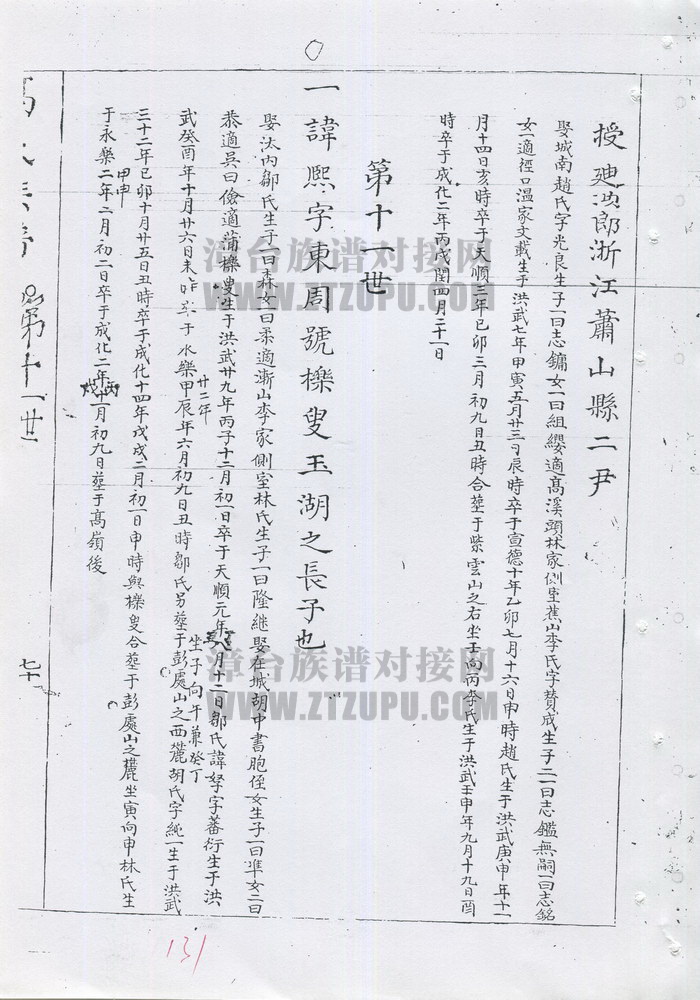 授廸功郎浙江蕭山縣二尹
娶城南趙氏字光良生子一曰志鏞女一曰組纓適高溪頭林家側室蕉山李氏字賛成生子二一曰志鑑無嗣一曰志銘
女一適徑口温家文載生于洪武七年甲寅五月廿三日辰時卒于宣德十年乙卯七月十六日申時趙氏生于洪武庚申年十一
月十四日亥時卒于天順三年巳卯三月初九日丑時合塟于紫雲山之右坐壬向丙李氏生于洪武壬申年九月十九日酉
時卒于成化二年丙戌閏四月二十一
第十一世
一諱熙字東周號櫟叟玉湖之長子也
娶汰内鄒氏生子一曰森女一曰柔適漸山李家側室林氏生子一曰隆継娶在城胡中書胞侄女生子一曰準女二曰
恭適吳曰儉適蒲櫟叟生于洪武廿九年丙子十二月初一日卒于天順元年八月十二日鄒氏諱孥字蕃衍生于洪
丁丑
武癸酉年十月廿六日未時卒于永樂甲辰年六月初九日丑時鄒氏另塟于彭處山之西麓胡氏字純一生于洪武
廿二年
坐子向午兼癸丁
三十二年巳卯十月廿五日丑時卒于成化十四年戊戌二月初一日申時與櫟叟合塟于彭處山之麓坐寅向申林氏生
于永樂二年二月初二日卒于成化二年十一月初九日塟于高嶺後
甲申
丙戌
第十一世
七十
131
漳台族谱对接网
WWW.ZTZUPU.COM
漳台族谱对接网
WWW.ZTZUPU.COM